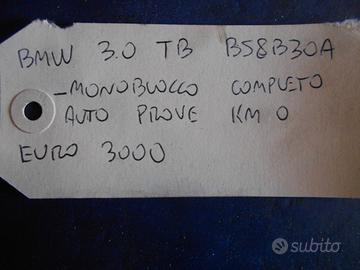 BMW 3.0 TB B58B30A
-MONOBLOCCO COMPLETO
AUTO PROVE KM 0
EURO 3000
subito